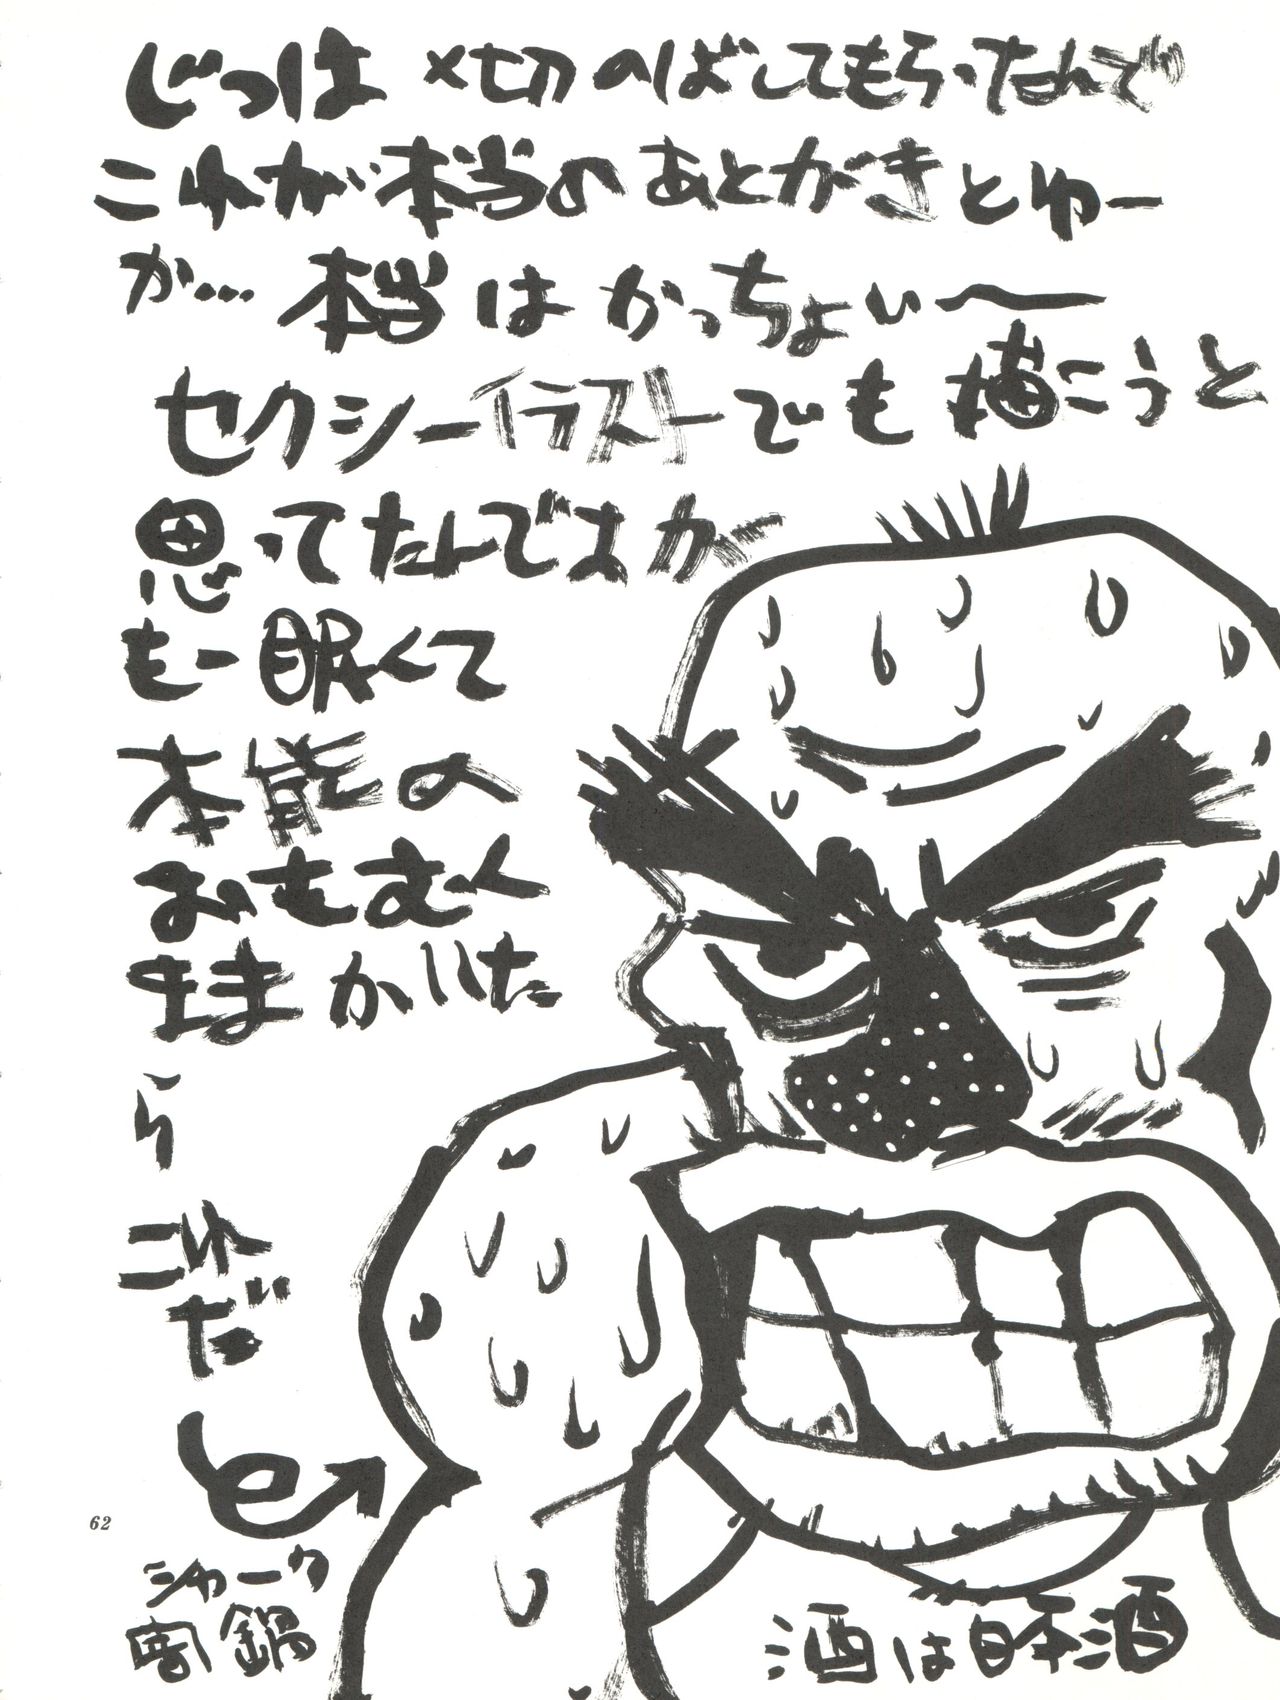 じつは〆切のばしてもらったなんで
これが本当のあとがきとゆー
か… 本当はかっちょいい〜
セクシーイラストでも描こうと
思ってたんですが
もー眠くて
本能の
おもむく
ままかいた
ら
これ
だ
62
シャーク
鍋
酒は日本酒